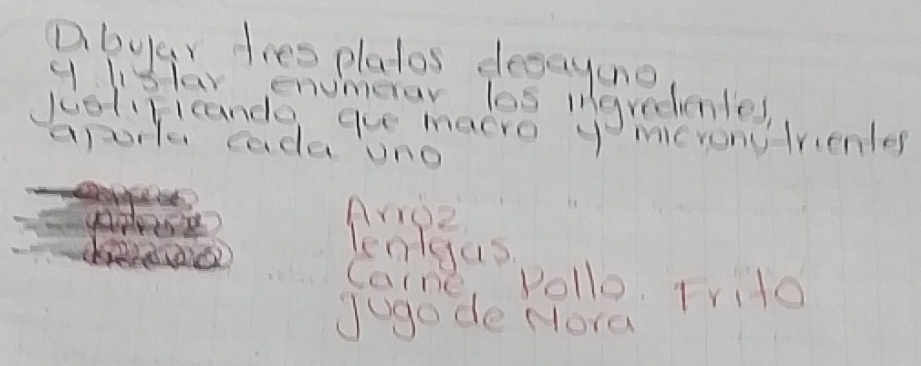 Dibujar tres platos desayuno
y listar enumerar los ingredientes,
justificando que macro y micronutrientes
aporta cada uno
Arroz
lentejas.
Carne Pollo. Frito
Jugo de Mora